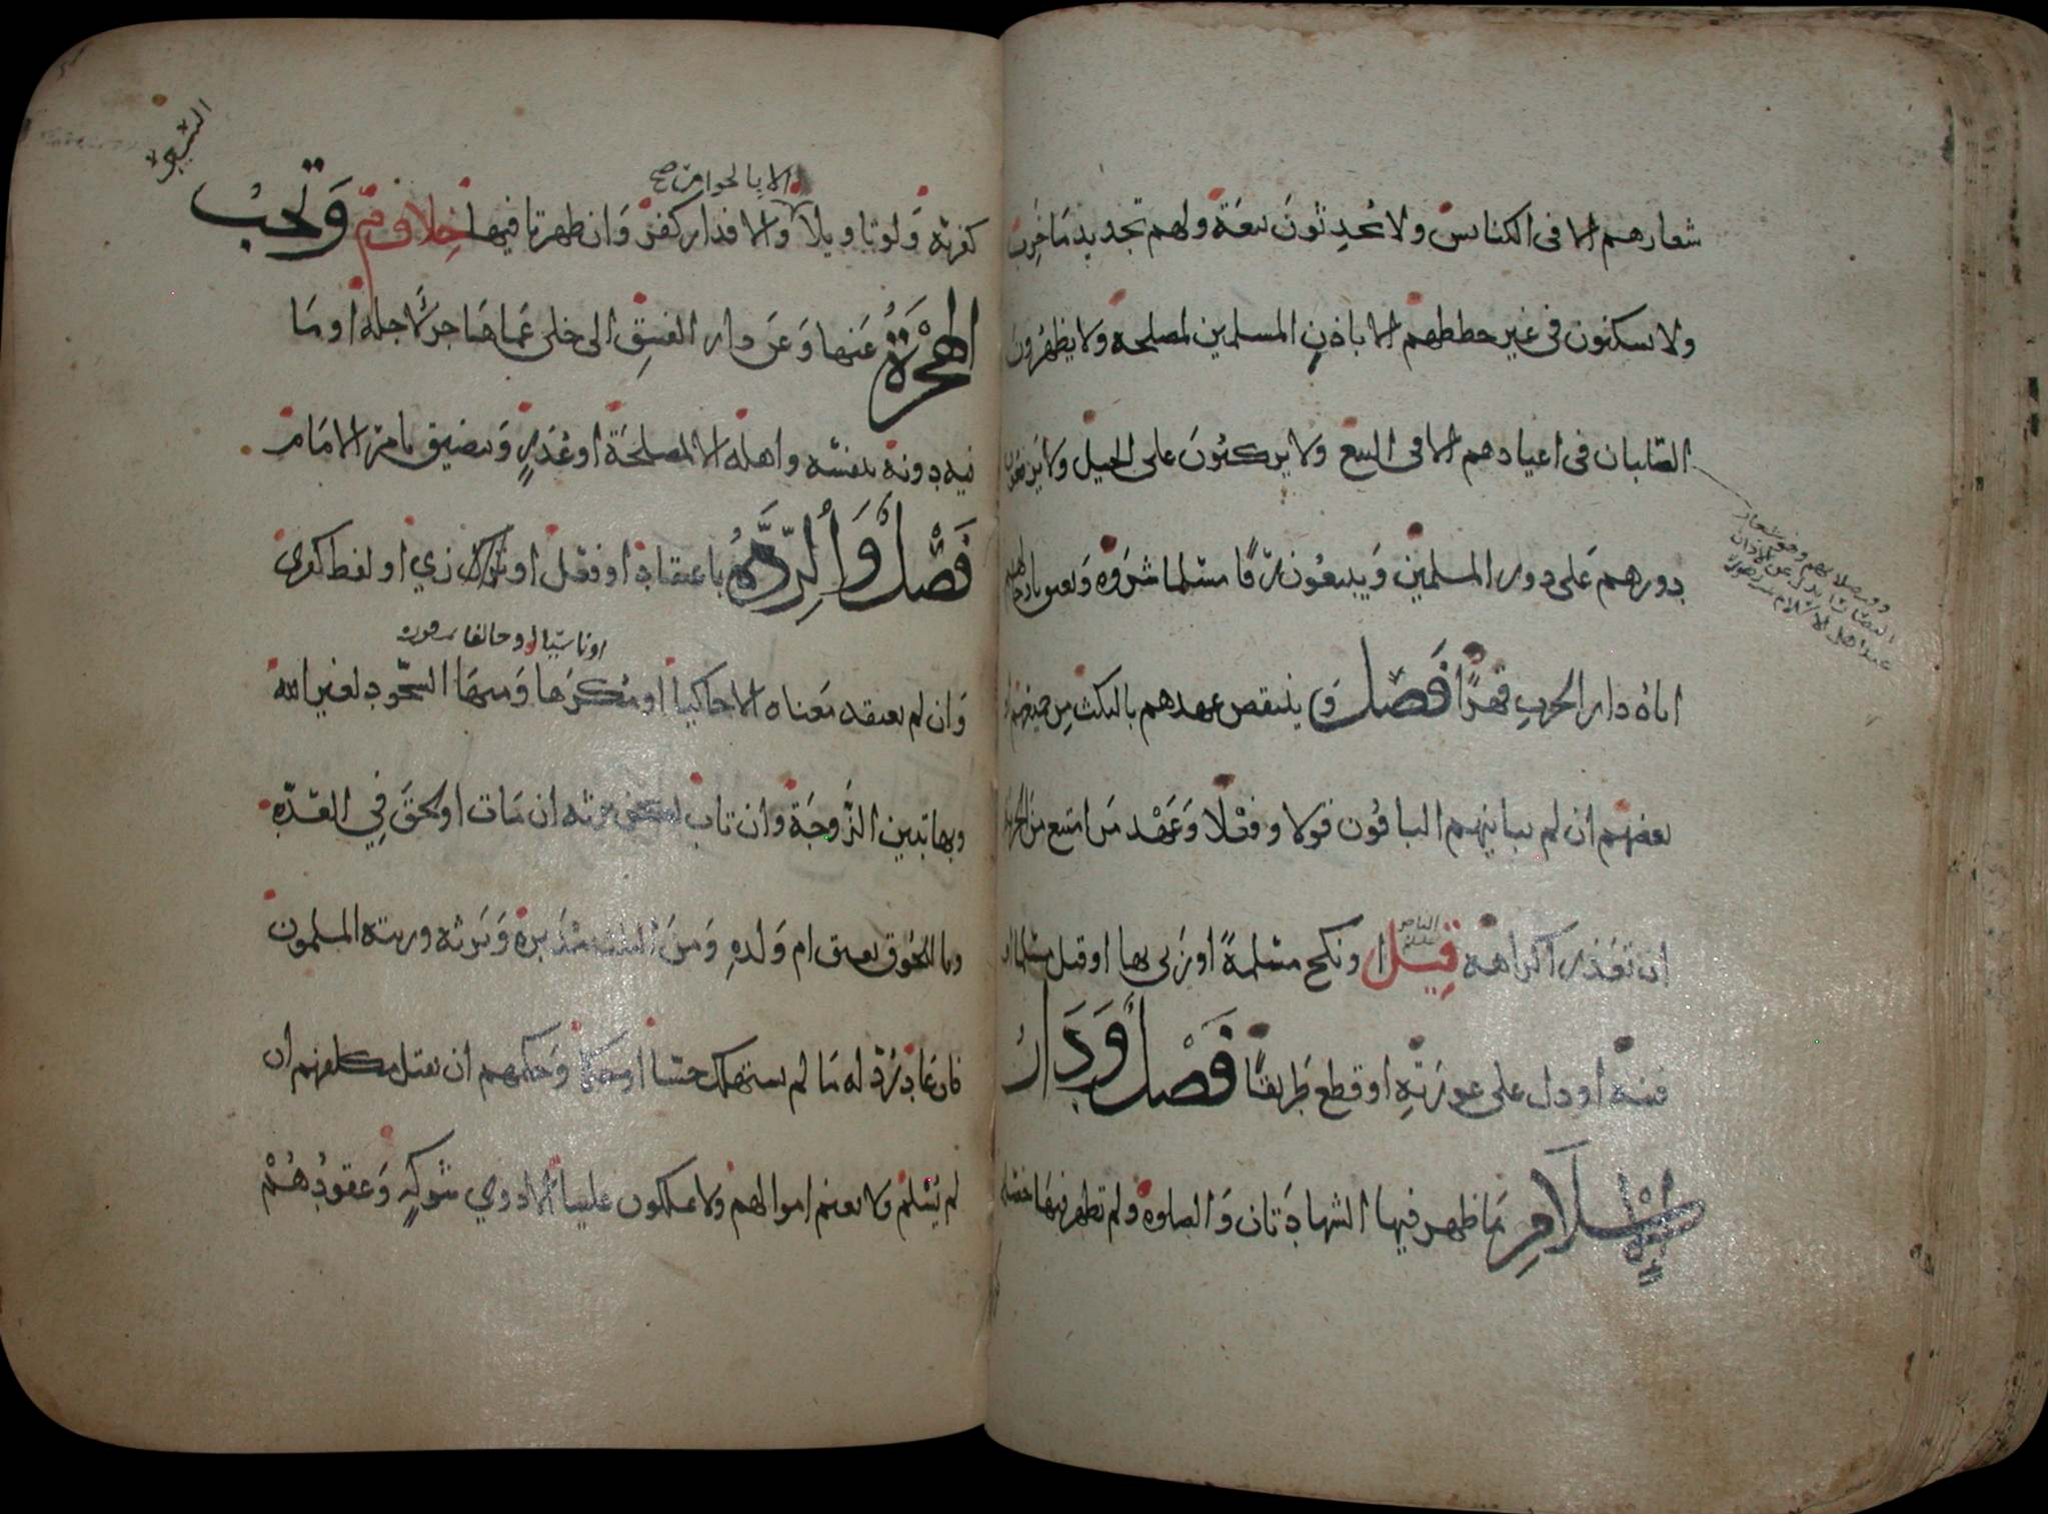 شعارهم الا في الكنائس ولا يحدثون بيعة ولهم تجديد ما خرب
ولا يسكنون في غير خططهم الا باذن المسلمين لمصلحة ولا يظهرون
الصلبان في اعيادهم الا في البيع ولا يركبون على الخيل ولا يرفعون
دورهم على دور المسلمين ويبيعون رقا مسلما شروه ويعتق بادخالهم
اياه دار الحرب قهرا فصل وينتقض عهدهم بالنكث من جميعهم او
بعضهم ان لم يباينهم الباقون قولا وفعلا وعهد من امتنع من الجزية
ان تعذر اكراهه قيل او نكح مسلمة او زنى بها او قتل مسلما او
فتنه او دل على عورته او قطع طريقا فصل ودار
الاسلام ما ظهر فيها الشهادتان والصلوه ولم تظهر فيها خصلة
كفرية ولو تاويلا والا فدار كفر وان ظهرتا فيها خلاف م وتجب
الا بالجوار من صح
الهجرة عنها وعن دار الفسق الى خلي عما هاجر لاجله او ما
فيه دونه بنفسه واهله الا لمصلحة او عذر وتتضيق بامر الامام
فصل والردة باعتقاد او فعل او زي او لفظ كفري
وان لم يعتقد معناه الا حاكيا او مكرها ومنها السجود لغير الله
وبها تبين الزوجة وان تاب لكن يرثه ان مات او لحق في العدة
وباللحوق يعتق ام ولده ومن الثلث مدبره ويرثه ورثته المسلمون
فان عاد رد له ما لم يستهلك حسا او حكما وحكمهم ان يقتل مكلفهم ان
لم يسلم ولا يغنم اموالهم ولا يملكون علينا الا ذوي شوكة وعقودهم